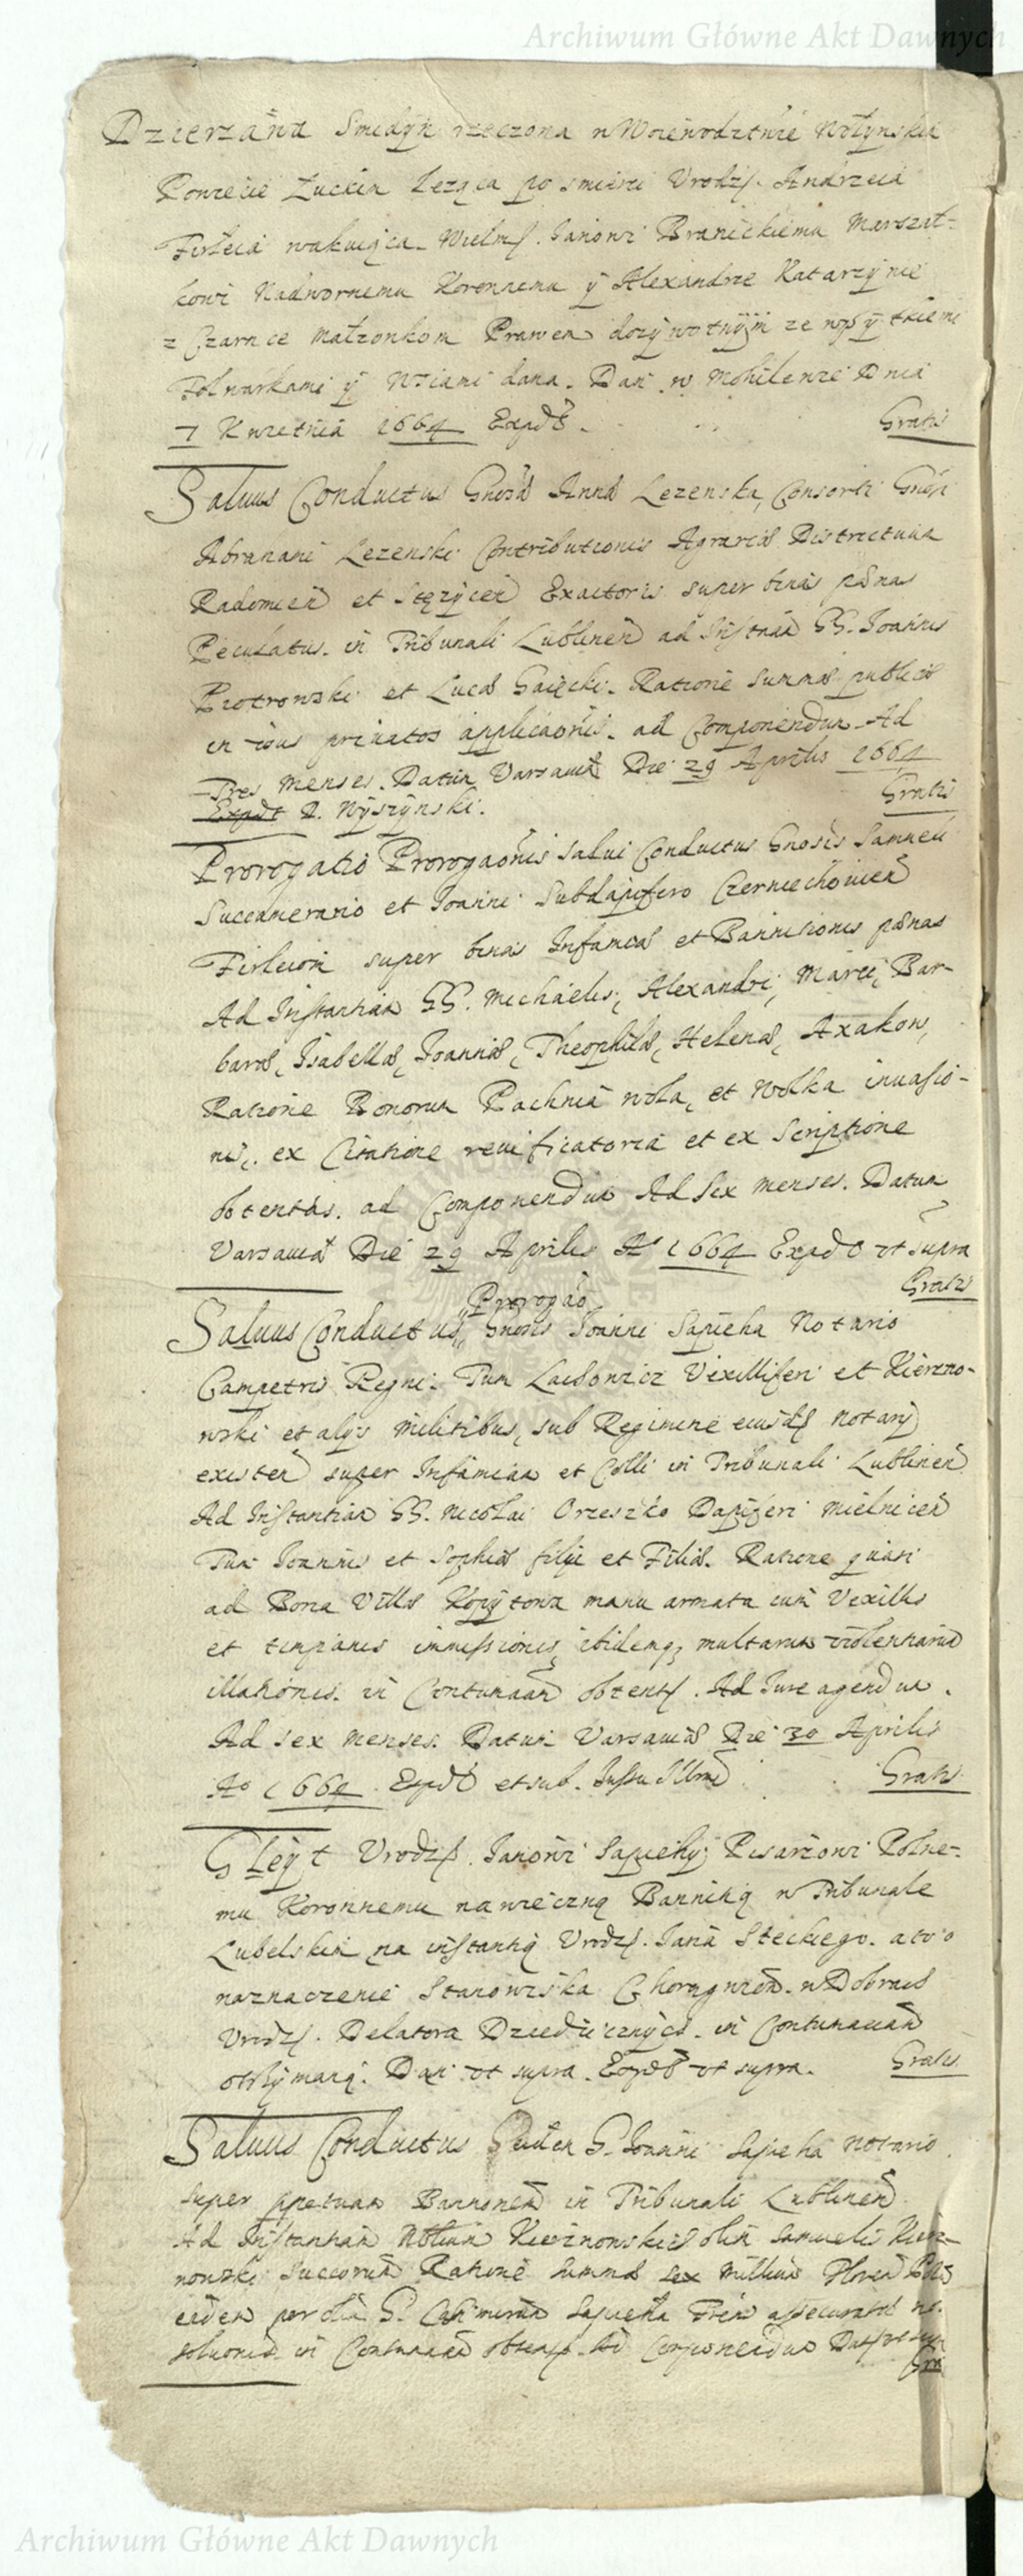 Archiwum Główne Akt Dawnych
Dzierżawa Smidyń rzeczona w Woiewodztwie Wołynskim
Powiecie Łuckim leząca po smierci Urodz. Andrzeia
Firleia wakuiąca. Wielm. Janowi Branickiemu Marszał-
kowi Nadwornemu Koronnemu ÿ Alexandrze Katarzÿnie
z Czarnce Małzonkom Prawem dozÿwotnÿm ze wszÿtkiemi
Folwarkami ÿ Wsiami dana. Dan w Mohilewie Dnia
7 Kwietnia 1664 Expd.
Gratis
Saluus Conductus Gnosæ Annæ Lezenska, Consorti Gnosi
Abrahami Lezenski Contributionis Agrariæ Districtuum
Radomien et Stęzÿcen Exactoris super binas pænas
Peculatus. in Tribunali Lublinen ad Instnam GG. Joannis
Piotrowski et Lucæ Gaięcki. Ratione summæ publicæ
in usus priuatos applicaonis. ad Componendum Ad
Tres Menses. Datum Varsauiæ Die 29 Aprilis 1664
Expdt R. Wÿszÿnski.
Gratis
Prorogatio Prorogaonis salui Conductus Gnosis Samueli
Succamerario et Joanni Subdapifero Czerniechouien
Firleiom super binas Infamiæ et Bannitionis pænas
Ad Instantiam GG. Michaelis, Alexandri, Marci, Bar-
baræ, Isabellæ, Joannis, Theophilæ, Helenæ, Axakow,
Ratione Bonorum Pachnia wola, et Wolka inuasio-
nis, ex Citatione reuificatoria et ex scriptione
obtentas. ad Componendum Ad Sex menses. Datum
Varsauiæ Die 29 Aprilis Ao 1664 Expd ut supra
Gratis
Prorogao
Saluus Conductus Gnosis Joanni Sapieha Notario
Campetri Regni. Tum Laidowicz Vexilliferi et Kierzno-
wski et alÿs militibus, sub Regimine eiusd Notarÿ
existen super Infamiam et Colli in Tribunali Lublinen
Ad Instantiam GG. Nicolai Orzeszko Dapiferi Mielnicen
Tum Joannis et Sophiæ filÿ et Filiæ. Ratione quasi
ad Bona Villæ Kopÿtowa manu armata cum Vexillis
et timpanis immissionis, ibidemq multarum violentiarum
illationis. in Contumaam obtent. Ad Jure agendum.
Ad sex menses. Datum Varsauiæ Die 30 Aprilis
Ao 1664. Expd et sub. Jussu Illmi
Gratis
Gleÿt Urodz. Janowi Sapiehÿ Pisarzowi Polne-
mu Koronnemu na wieczną Bannitią w Tribunale
Lubelskim na instantią Urodz. Jana Steckiego. a to o
naznaczenie Stanowiska Chorągwiom. w Dobrach
Urodz. Delatora Dziedzicznÿch. in Contumaciam
otrzÿmaną. Dan ut supra. Expd ut supra.
Gratis
Saluus Conductus Eidem G. Joanni Sapieha Notario
super ppetuam Bannonem in Tribunali Lublinen
Ad Instantiam Nobilium Kierznowskich olim Samuelis Kierz-
nowski Succorum Ratione summæ sex Millium Floren Pol
eidem per olim G. Casimirum Sapieha assecuratæ no.
solutionis in Contumaam obtent. Ad Componendum Dat ut supra
Gra
Archiwum Główne Akt Dawnych